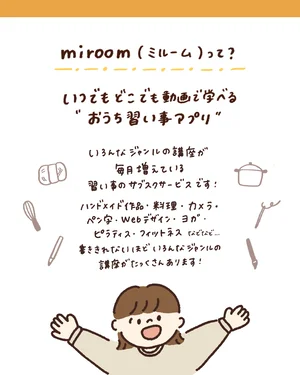 miroom (ミルーム)って?
いつでもどこでも動画で学べる
"おうち習い事アプリ"
いろんなジャンルの講座が
毎月増えている
習い事のサブスクサービスです!
ハンドメイド作品・料理・カメラ・
ペン字・Webデザイン・ヨガ・
ピラティス・フィットネス などなど...
書ききれないほどいろんなジャンルの
講座がたっくさんあります!